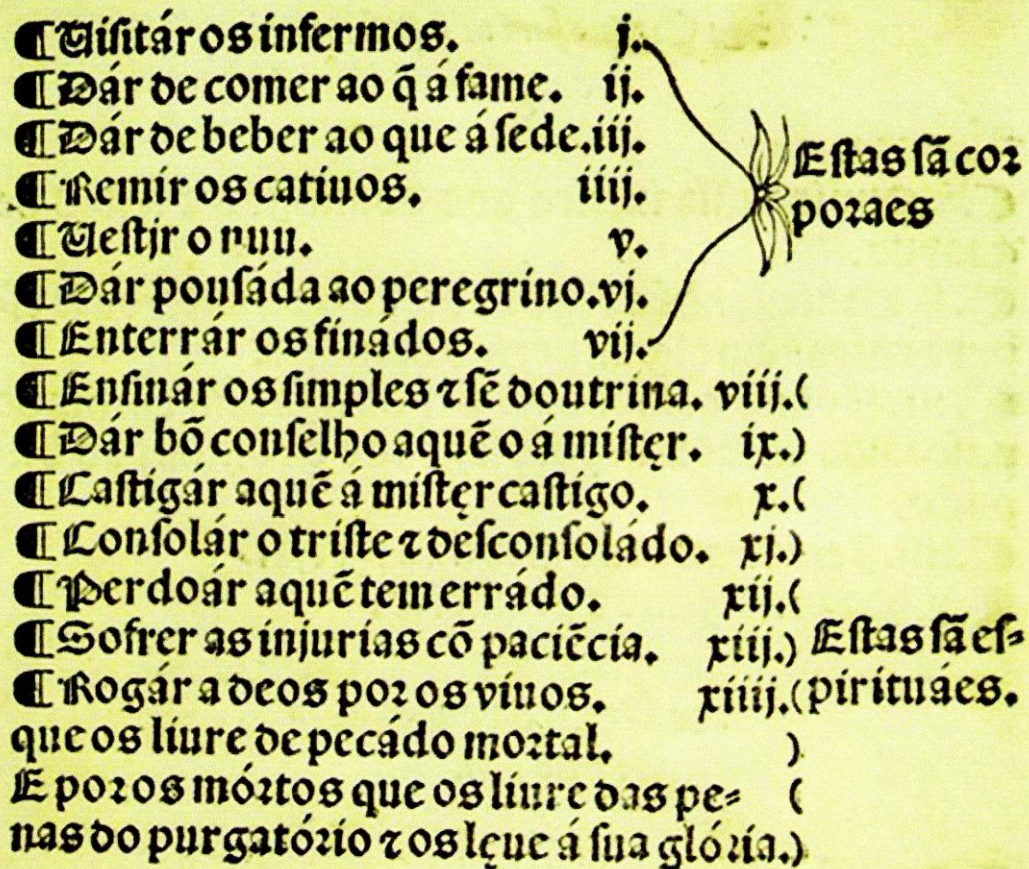 ¶ Uiſitár os infermos. j.
¶ Dár de comer ao q̃ á fame. ij.
¶ Dár de beber ao que á ſede. iij.
¶ Remir os catiuos. iiij.
¶ Ueſtjr o nuu. v.
¶ Dár pouſáda ao peregrino. vj.
¶ Enterrár os finádos. vij.
Eſtas ſã coꝛ
poꝛaes
¶ Enſinár os ſimples ⁊ ſẽ doutrina. viij.(
¶ Dár bõ conſelho aquẽ o á miſtęr. ix.)
¶ Caſtigár aquẽ á miſtęr caſtigo. x.(
¶ Conſolár o triſte ⁊ deſconſoládo. xj.)
¶ Perdoár aquẽ tem errádo. xij.(
¶ Sofrer as injurias cõ paciẽcia. xiij.)
¶ Rogár a deos poꝛ os viuos. xiiij.(
que os liure de pecádo moꝛtal. )
E poꝛ os móꝛtos que os liure das pe⸗ (
nas do purgatóꝛio ⁊ os lęue á ſua glóꝛia.)
Eſtas ſã eſ⸗
pirituáes.